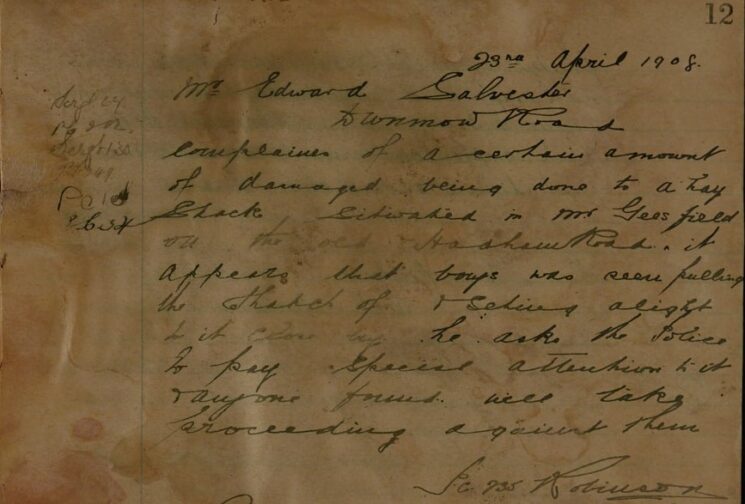 12
23rd April 1908.
Mr Edward Salvester
Dunmow Road
complaines of a certain amount
of damaged being done to a hay
Stack Sitwated in Mr Gees field
on the old Road. it
appears that boys was seen pulling
the thatch of & Seting alight
to it close by he asks the Police
to pay Special attention to it
& anyone found will take
proceeding against them
P.C. 735 Robinson